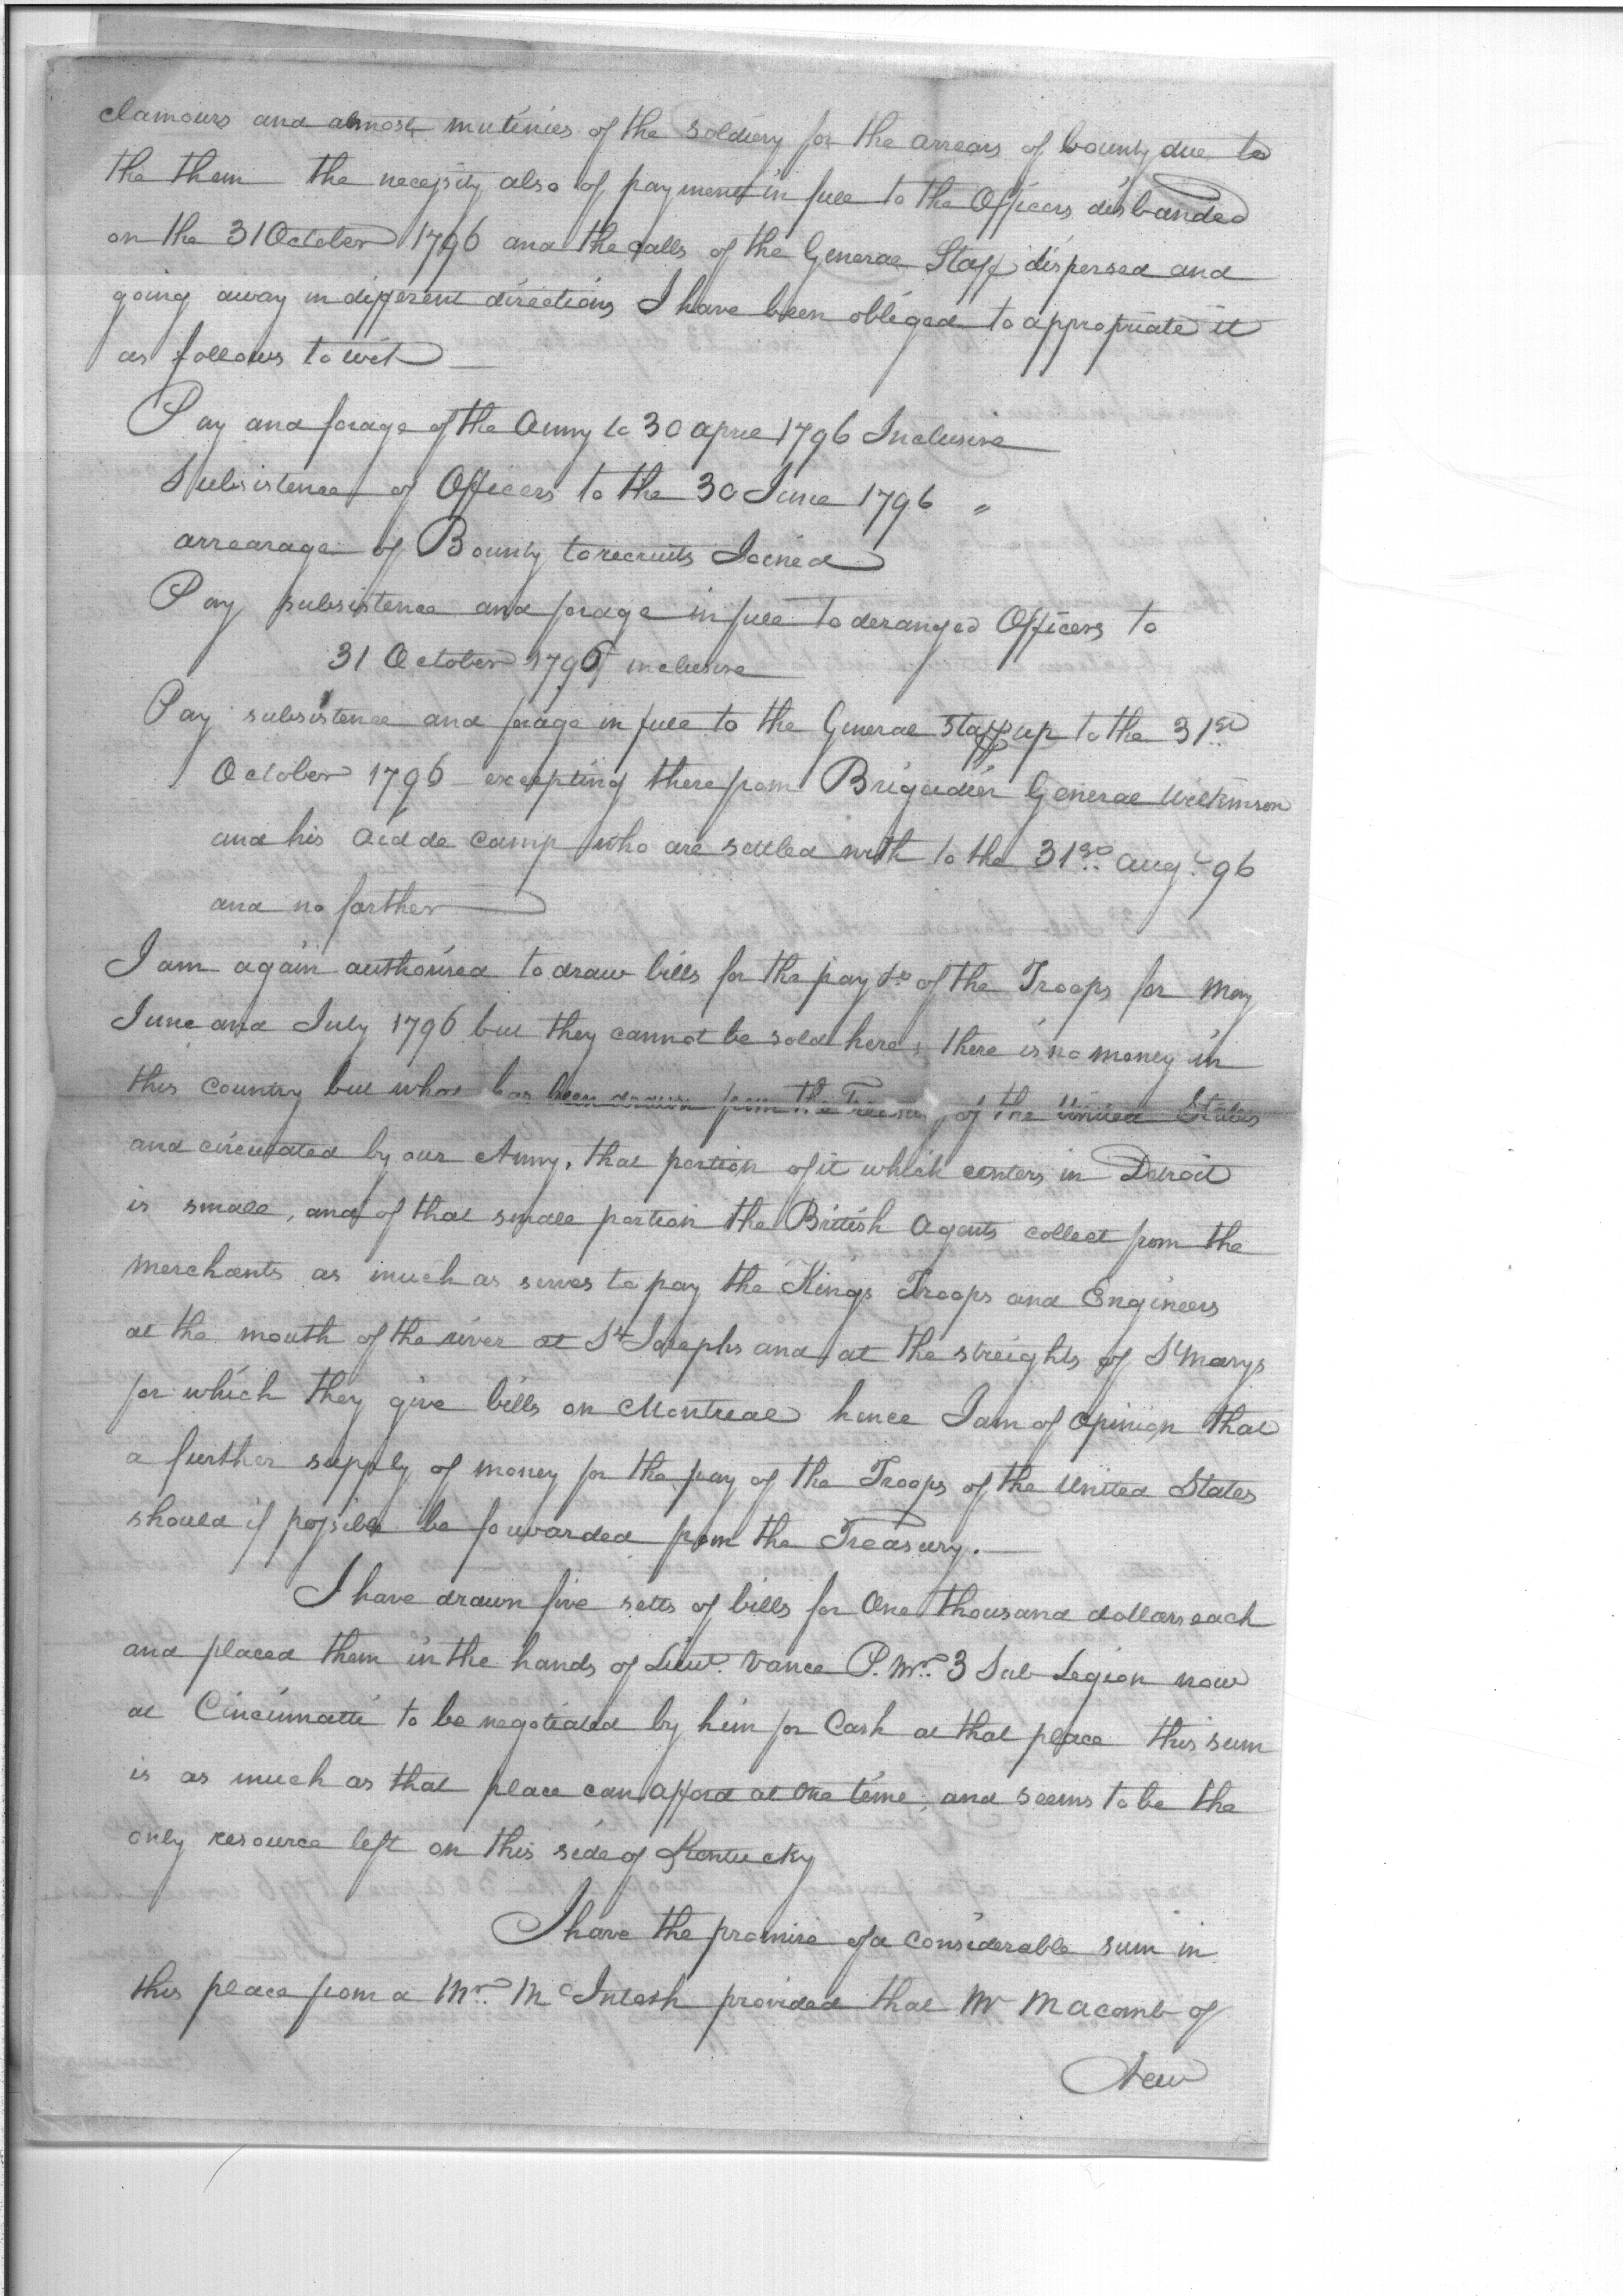 clamours and almost mutinies of the soldiery for the arrears of bounty due to
the them the necessity also of payment in full to the Officers disbanded
on the 31 October 1796 and the calls of the General Staff dispersed and
going away in different directions I have been obliged to appropriate it
as follows to wit —
Pay and forage of the Army to 30 april 1796 Inclusive
Subsistence of Officers to the 30 June 1796 "
arrearage of Bounty to recruits Joined
Pay subsistence and forage in full to deranged Officers to
31 October 1796 inclusive
Pay subsistence and forage in full to the General Staff up to the 31st
October 1796 excepting therefrom Brigadier General Wilkinson
and his aid de camp who are settled with to the 31st augt. 96
and no farther
I am again authorised to draw bills for the pay &c of the Troops for May
June and July 1796 but they cannot be sold here, there is no money in
this country but what has been drawn from the Treasury of the United States
and circulated by our Army, that portion of it which centers in Detroit
is small, and of that small portion the British agents collect from the
merchants as much as serves to pay the Kings Troops and Engineers
at the mouth of the river at St Josephs and at the streights of St marys
for which they give bills on Montreal hence I am of opinion that
a further supply of money for the pay of the Troops of the United States
should if possible be forwarded from the Treasury. —
I have drawn five setts of bills for One thousand dollars each
and placed them in the hands of Lieut. Vance P. Mr. 3 Sub Legion now
at Cincinnatti to be negotiated by him for Cash at that place this sum
is as much as that place can afford at one time, and seems to be the
only resource left on this side of Kentucky
I have the promise of a considerable sum in
this place from a Mr. McIntosh provided that Mr Macomb of
New